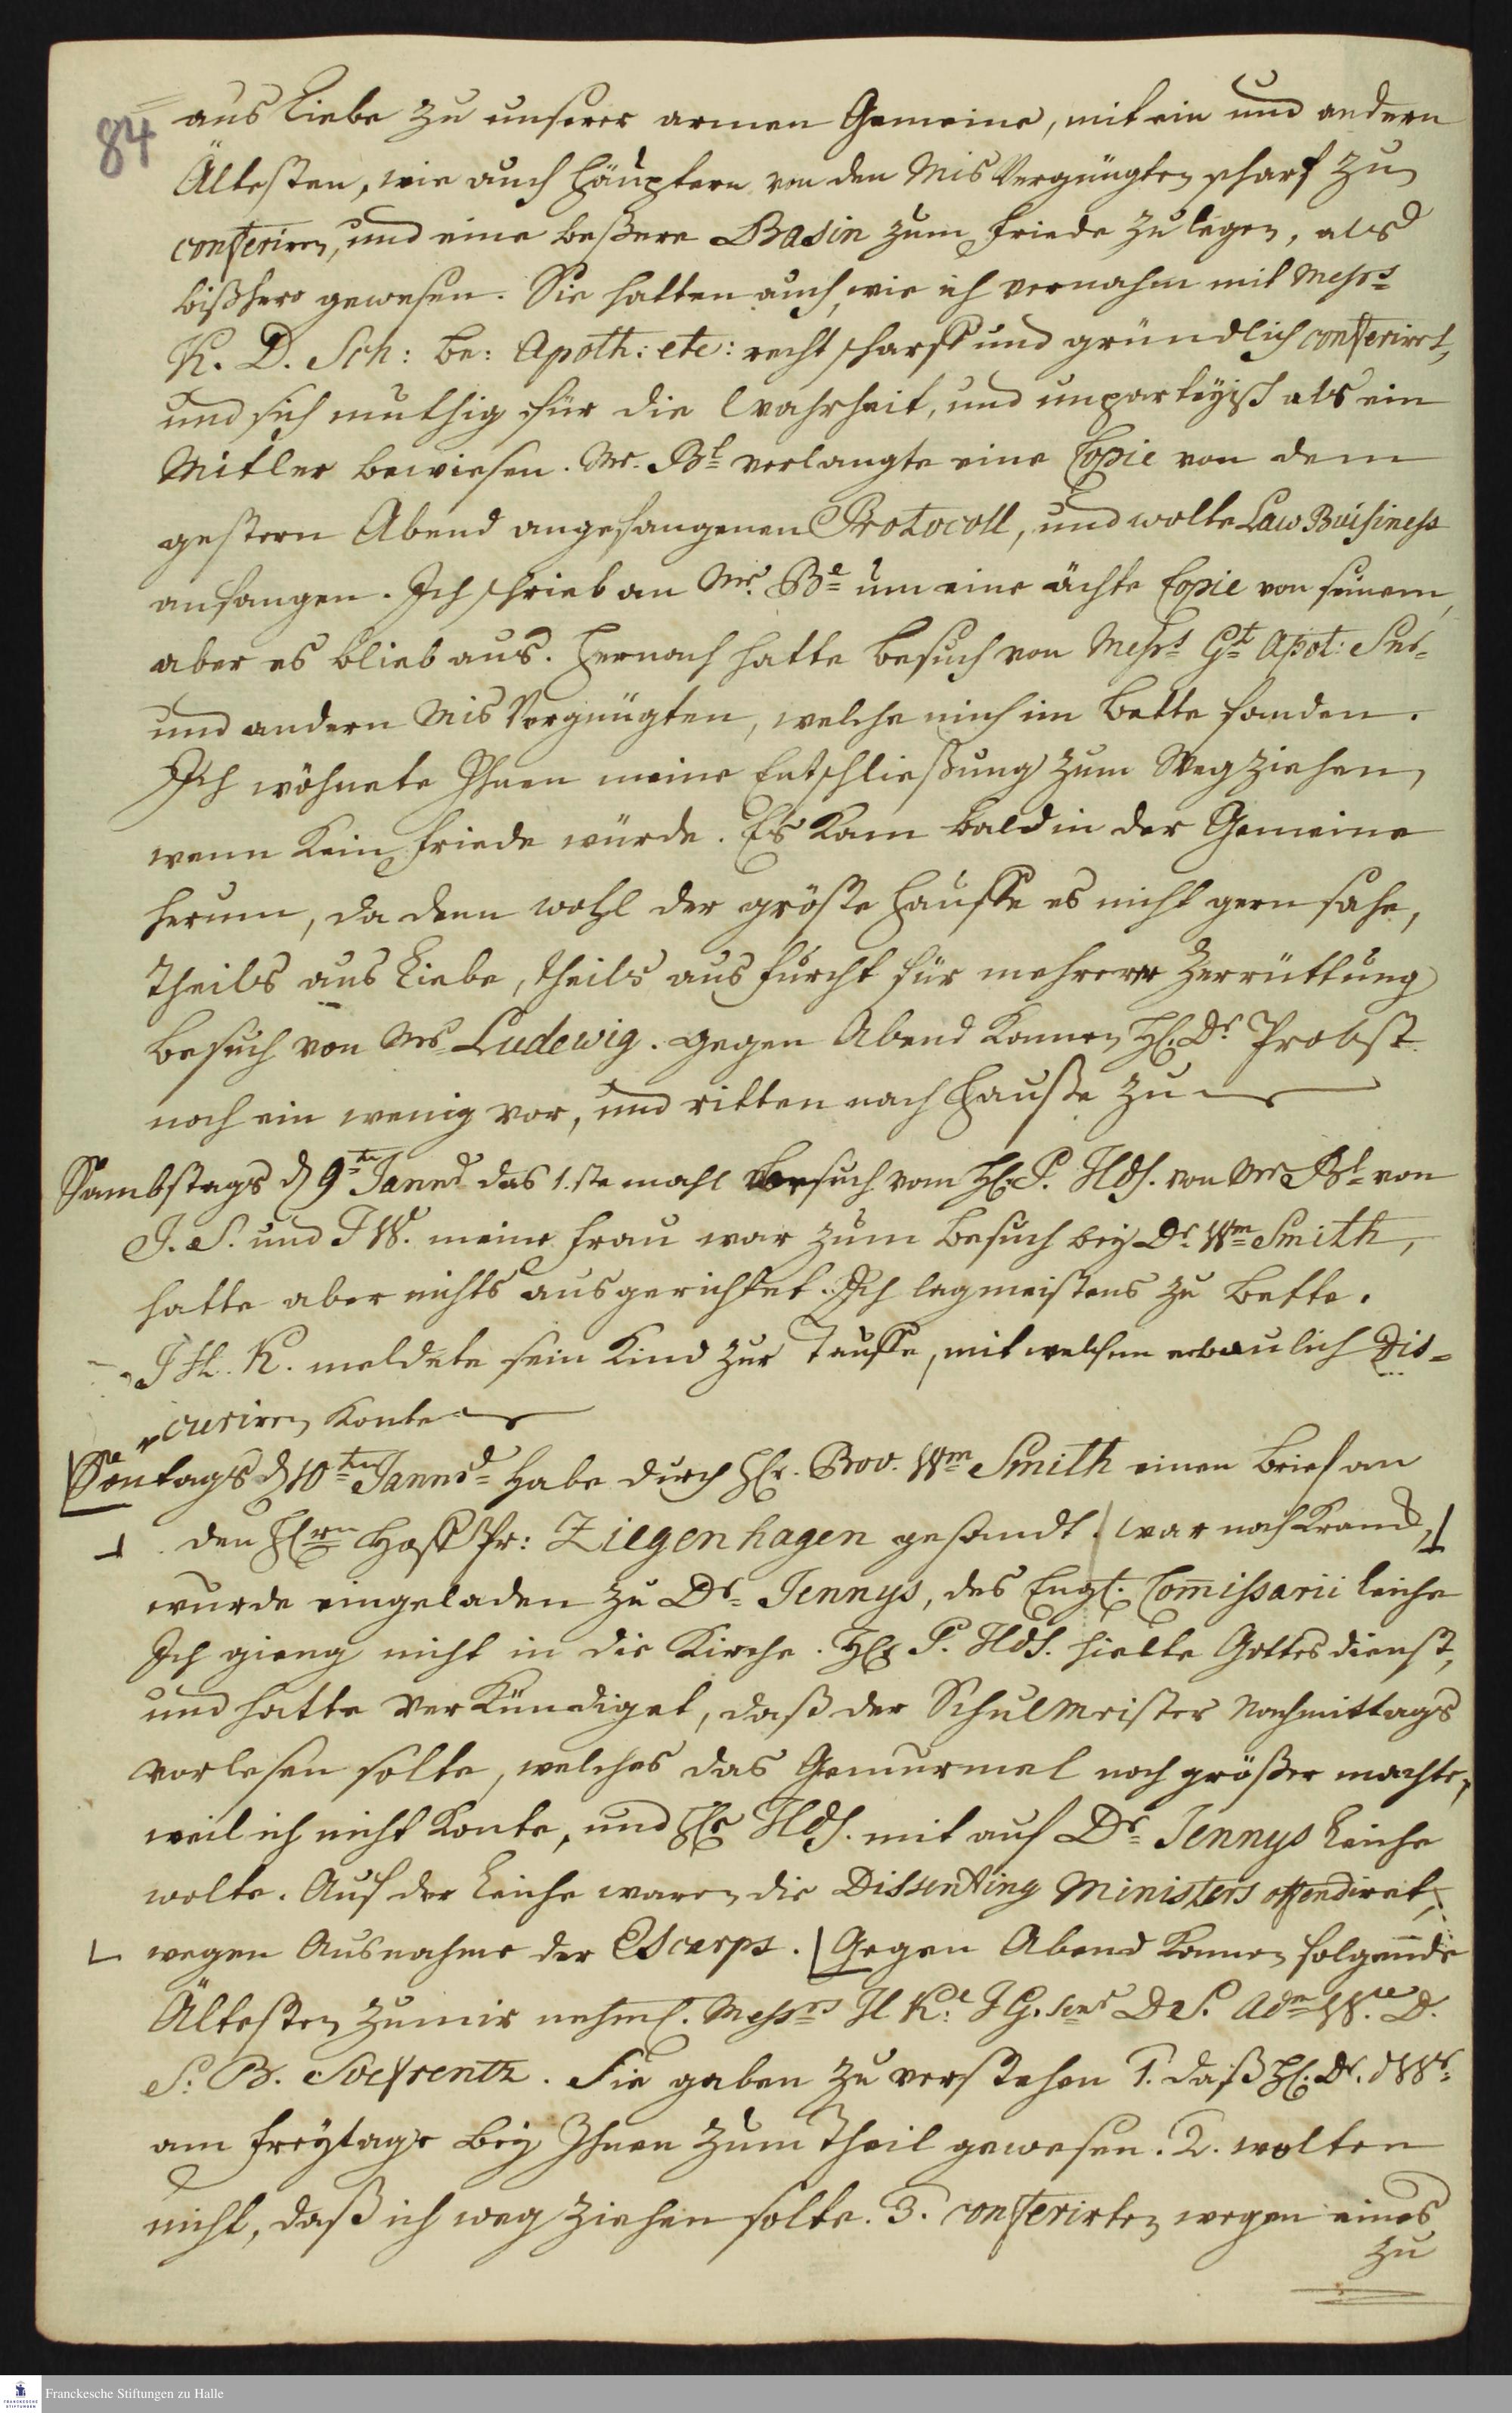 84
aus Liebe zu unserer armen Gemeine, mit ein und andern
Ältesten, wie auch Häuptern von den MisVergnügten scharf zu
conferiren, und eine beßere Basin zum Friede zu legen, als
bißhero gewesen. Sie hatten auch, wie ich vernahm mit Messrs
K. D. Sch: be: Apoth: etc: recht scharff und gründlich conferirt,
und sich muthig für die Wahrheit, und unparteyisch als ein
Mitler bewiesen. Mr. Bl verlangte eine Copie von dem
gestern Abend angefangenen Protocoll, und wolte Law Buisiness
anfangen. Ich schrieb an Mr. Bl um eine ächte Copie von seinem,
aber es blieb aus. Hernach hatte Besuch von Messrs Gt Apot:
und andern MisVergnügten, welche mich im Bette fanden.
Ich wöhnete Ihnen meine Entschließung zum Wegziehen,
wenn kein Friede würde. Es kam bald in der Gemeine
herum, da denn wohl der gröste Hauffe es nicht gern sahe,
theils aus Liebe, theils aus Furcht für mehrerer Zerrüttung
Besuch von Mr Ludewig. gegen Abend kamen H. Dr Probst
noch ein wenig vor, und ritten nach Hauße zu
Sambstags d 9ten Januar das 1.ste mahl Besuch vom H. P. Hds. von Mr Bl von
J. S. und J W. meine Frau war zum Besuch bey Dr. Wm Smith,
hatte aber nichts ausgerichtet. Ich lag meistens zu Bette.
J H. K. meldete sein Kind zur Tauffe, mit welchem erbaulich Dis-
curiren konte
Sontags d 10ten Januar Habe durch Hr. Prov. Wm Smith einen Brief an
den Hrrn HoffPr: Ziegenhagen gesandt. war noch kranck,
wurde eingeladen zu Dr Jennys, des Engl. Commissarii Leiche
Ich gieng nicht in die Kirche. Hr P. Hds. hielte Gottesdienst,
und hatte verkündiget, daß der SchulMeister Nachmittags
vorlesen solte, welches das Gemurmel noch größer machte,
weil ich nicht konte, und Hr Hds. mit auf Dr Jennys Leiche
wolte. Auf der Leiche waren die Dissenting Ministers offendiret,
wegen Ausnahme der Escarps. Gegen Abend kamen folgende
Ältesten zu mir nehml. Messrs H Kl J G. senr D S. Adm W. D.
S. B. Soefrentz. Sie gaben zu verstehen 1. daß H. Dr. Wr
am Freytage bey Ihnen zum Theil gewesen. 2. wolten
nicht, daß ich weg ziehen solte. 3. conferirten wegen eines
zu
Franckesche Stiftungen zu Halle